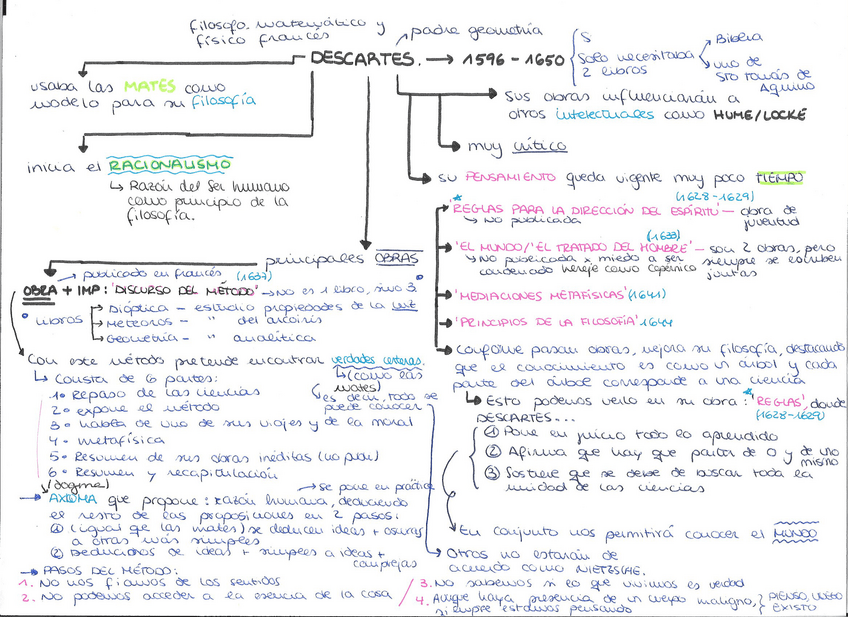 filosofo, matemático y
físico francés
padre geometría
DESCARTES. → 1596 - 1650
S
Solo necesitaba
2 libros
Biblia
uno de
Sto Tomás de
Aquino
usaba las MATES como
modelo para su filosofía
sus obras influenciarán a
otros intelectuales como HUME/LOCKE
muy crítico
inicia el RACIONALISMO
↳ Razón del ser humano
como principio de la
filosofía.
su PENSAMIENTO queda vigente muy poco TIEMPO
(1628-1629)
'REGLAS PARA LA DIRECCIÓN DEL ESPÍRITU' - obra de
juventud
↳ No publicada
(1633)
'EL MUNDO/'EL TRATADO DEL HOMBRE' - son 2 obras, pero
siempre se escriben
juntas
↳ No publicada x miedo a ser
condenado hereje como Copérnico
'MEDIACIONES METAFÍSICAS' (1641)
'PRINCIPIOS DE LA FILOSOFÍA' 1644
principales OBRAS
→ publicado en francés (1637)
OBRA + IMP: 'DISCURSO DEL MÉTODO' → No es 1 libro, sino 3.
libros
→ Dióptica - estudio propiedades de la luz
→ Meteoros - " del arcoiris
→ Geometría - " analítica
Con este método pretende encontrar verdades certeras.
↳ (como las
mates)
es decir, todo se
puede conocer
↳ Consta de 6 partes:
1º Repaso de las ciencias
2º expone el método
3º habla de uno de sus viajes y de la moral
4º metafísica
5º Resumen de sus obras inéditas (no publi)
6º Resumen y recapitulación
(dogma)
→ se pone en práctica
→ AXIOMA que propone: razón humana, deduciendo
el resto de las proposiciones en 2 pasos:
① (igual qe las mates) se deducen ideas + oscuras
a otras más simples
② Deducimos de ideas + simples a ideas +
complejas
→ PASOS DEL MÉTODO:
1. No nos fiamos de los sentidos
2. No podemos acceder a la esencia de la cosa
3. No sabemos si lo que vivimos es verdad
4. Aunque haya presencia de un cuerpo maligno,
siempre estamos pensando
PIENSO, LUEGO
EXISTO
Conforme pasan obras, mejora su filosofía, destacando
que el conocimiento es como un árbol y cada
parte del árbol corresponde a una ciencia
↳ Esto podemos verlo en su obra: 'REGLAS', donde
(1628-1629)
DESCARTES...
① Pone en juicio todo lo aprendido
② Afirma que hay que partir de 0 y de uno
mismo
③ Sostiene que se debe de buscar toda la
unidad de las ciencias
En conjunto nos permitirá conocer el MUNDO
Otros no estarán de
acuerdo como NIETZSCHE.